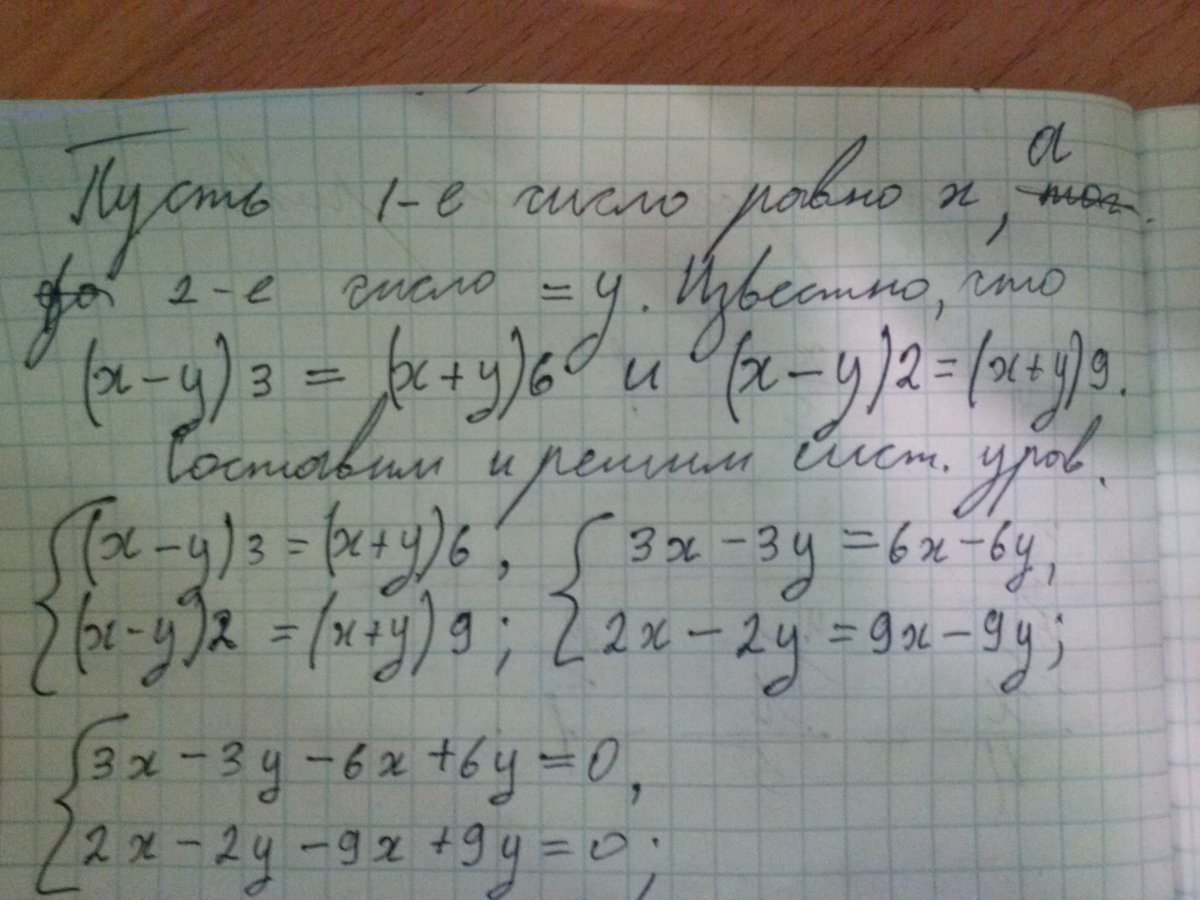 Пусть 1-е число равно x, а
2-е число = y. Известно, что
(x-y)3 = (x+y)6 и (x-y)2=(x+y)9.
Составим и решим сист. урав.
(x-y)3=(x+y)6, 3x-3y=6x-6y,
(x-y)2=(x+y)9; 2x-2y=9x-9y;
3x-3y-6x+6y=0,
2x-2y-9x+9y=0;